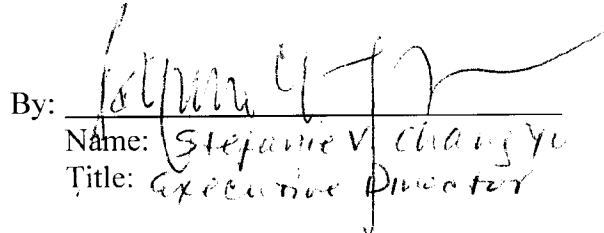 By:
Name: Stefanie V Chang Yu
Title: Executive Director